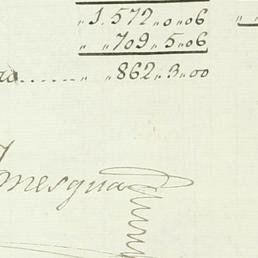 „1.572„0„06
„ „709„5„06
ro......„ „862„3„00
mesqua